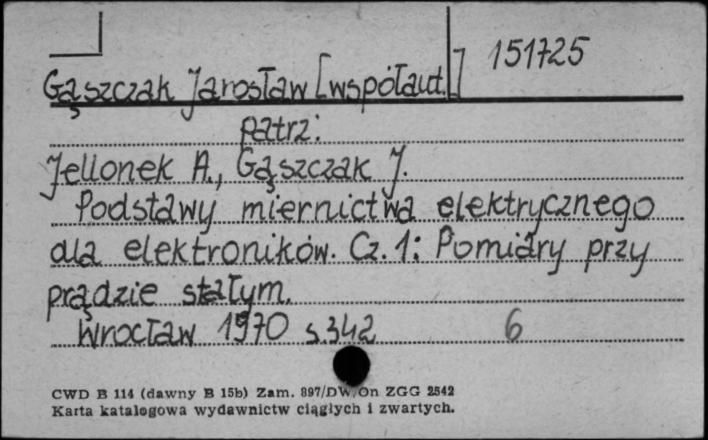 151725
Gąszczak Jarosław [współaut.]
patrz:
Jellonek A., Gąszczak J.
Podstawy miernictwa elektrycznego
dla elektroników. Cz. 1: Pomiary przy
prądzie stałym.
Wrocław 1970 s. 342 6
CWD B 114 (dawny B 15b) Zam. 897/DW/On ZGG 2542
Karta katalogowa wydawnictw ciągłych i zwartych.